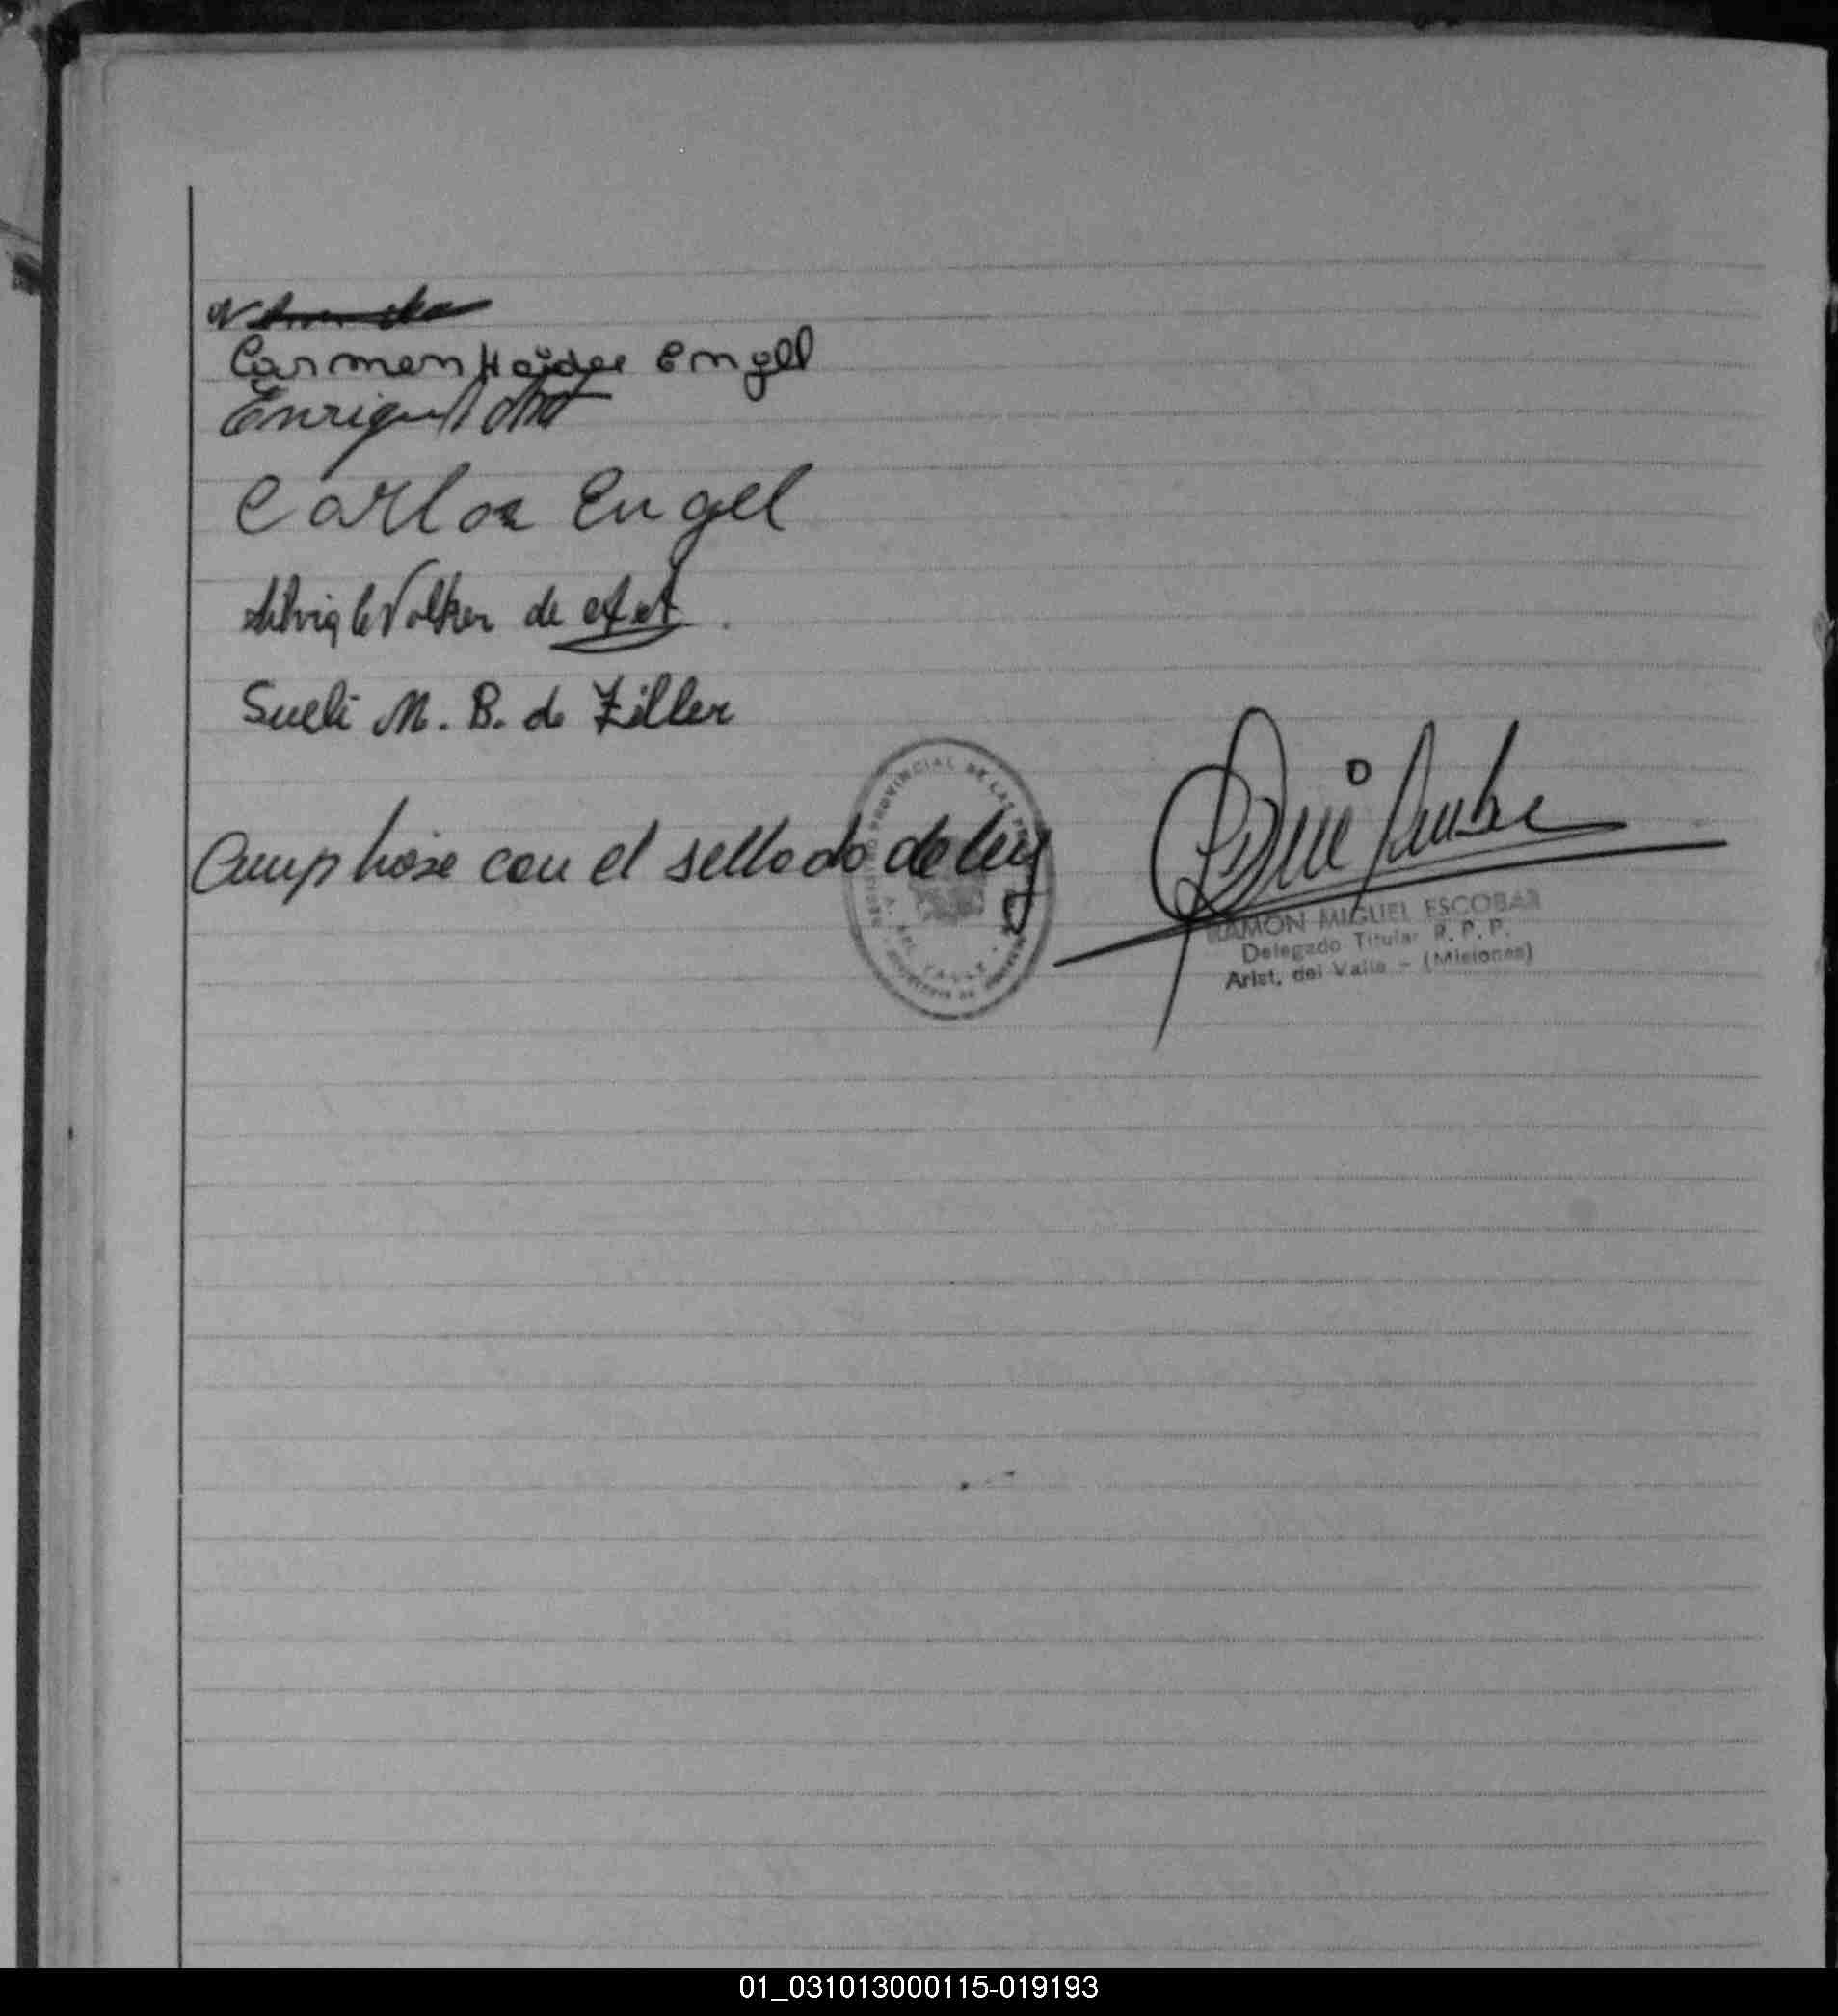 Carmen Haidee Engel
Enrique
Carlos Engel
Silvia C Volker de
Sueli M. B. de Ziller
Cumplióse con el sellado de ley
PROVINCIAL DE LAS
RAMON MIGUEL ESCOBAR
Delegado Titular R. P. P.
Arist. del Valle - (Misiones)
01_031013000115-019193